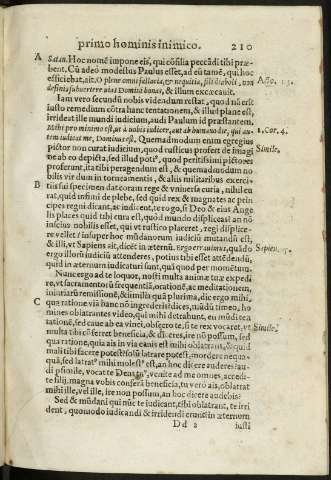 primo hominis inimico. 210
A Satan. Hoc nomẽ impone eis, qui cõsilia peccãdi tibi præ-
bent. Cũ adeò modestus Paulus esset, ad eũ tamẽ, qui hoc
efficiebat, ait. O plene omni fallacia, & nequitia, fili diaboli, non
definis subuertere vias Domini bonas, & illum excæcauit.
Iam verò secundũ nobis videndum restat, quod nã est
iusto remedium cõtra hanc tentationem, & illud plane est,
irrideat ille mundi iudicium, audi Paulum id præstantem.
Mihi pro minimo est, ut à vobis iudicer, aut ab humano die, qui au- 1. Cor. 4.
tem iudicat me, Dominus est. Quemadmodum enim egregius
pictor non curat iudicium, quod rusticus profert de imagi Simile.
ne ab eo depicta, sed illud potiꝰ, quod peritissimi pictores
proferunt, ita tibi peragendum est, & quemadmodum no
bilis vir dum in torneamentis, & aliis militaribus exerci-
B tiis sui specimen dat coram rege & vniuersa curia, nihil cu
rat, quid infimi de plebe, sed quid rex & magnates ac prin
cipes regni dicant, ac iudicent, te rogo, si Deo & eius Ange
lis places quid tibi cura est, quòd mundo displiceas? an nõ
inscius nobilis esset, qui vt rustico placeret, regi displice-
re vellet? insuper hoc mũdanorum iudiciũ mutandũ est,
& illi, vt Sapiens ait, dicẽt in æternũ. Ergo errauimus, quãdo Sapien.
ergo illorũ iudiciũ attenderes, potius tibi esset attẽdendũ,
quid in æternum iudicaturi sunt, quã quod per momẽtum.
Nunc ergo ad te loquor, nosti multa animæ tuæ expedi
re, vt sacramentorũ frequentiã, orationẽ, ac meditationem,
iniuriarũ remissionẽ, & similia quã plurima, dic ergo mihi,
C qua ratione via hanc nõ ingrederis? dices, nũdũ timeo, ho
mines oblatrantes video, qui mihi detrahunt, en mũdi tea
rationẽ, sed caue ab ea vinci, obsecro te. si te rex vocaret, vt Simile.
multa tibi cõferret beneficia, & diceres, ire nõ possum, sed
qua ratione, quia ais in via canis est mihi oblatrans, & quid
mali tibi facere potest? solũ latrare potest, mordere nequa-
quã, sed latratꝰ mihi molestꝰ est, an hoc dicere auderes? au-
di pisomle, vocat te Deus, venite ad me omnes, accedi-
te filij, magna vobis conferã beneficia, tu verò ais, oblatrat
mihi ille, vel ille, ire non possum, an hoc dicere audebis?
Sed & mũdani qui nũc te iudicant, tibi oblatrant, te irri
dent, quomodo iudicandi & irridendi erunt in æternum
Dd 2 iusti